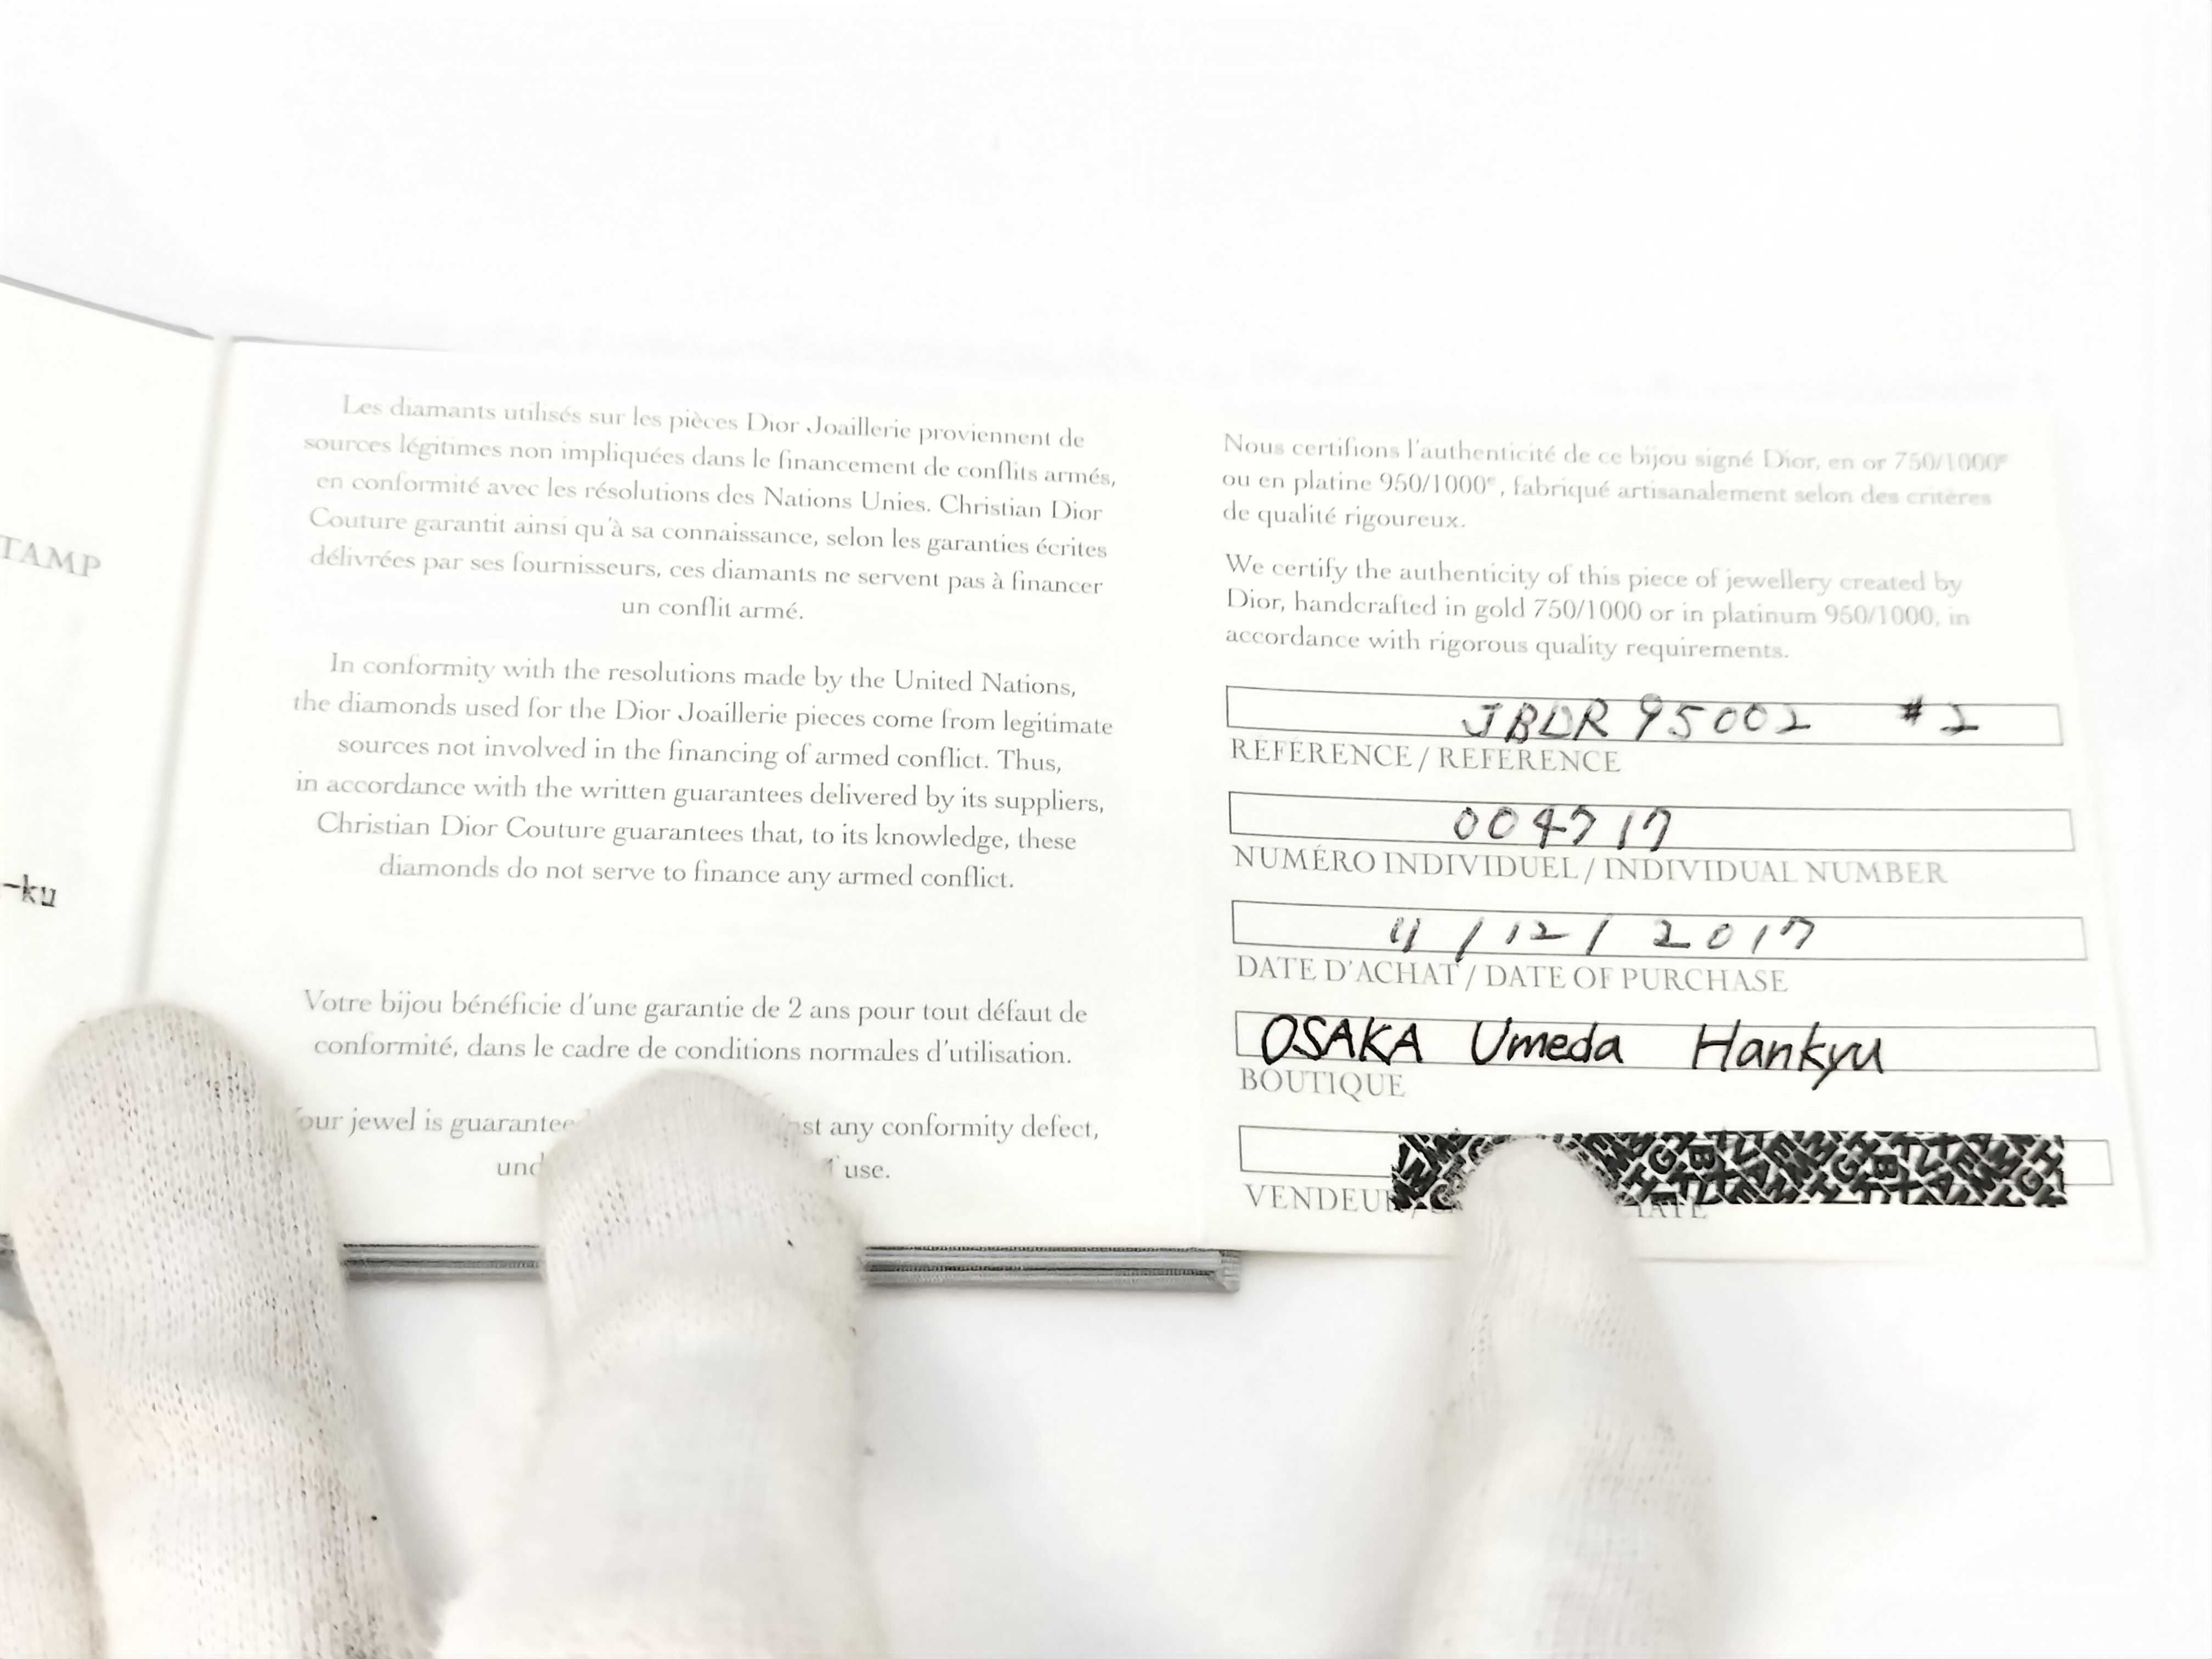 TAMP
-ku
Les diamants utilisés sur les pièces Dior Joaillerie proviennent de
sources légitimes non impliquées dans le financement de conflits armés,
en conformité avec les résolutions des Nations Unies. Christian Dior
Couture garantit ainsi qu'à sa connaissance, selon les garanties écrites
délivrées par ses fournisseurs, ces diamants ne servent pas à financer
un conflit armé.
In conformity with the resolutions made by the United Nations,
the diamonds used for the Dior Joaillerie pieces come from legitimate
sources not involved in the financing of armed conflict. Thus,
in accordance with the written guarantees delivered by its suppliers,
Christian Dior Couture guarantees that, to its knowledge, these
diamonds do not serve to finance any armed conflict.
Votre bijou bénéficie d'une garantie de 2 ans pour tout défaut de
conformité, dans le cadre de conditions normales d'utilisation.
our jewel is guarantee st any conformity defect,
und use.
Nous certifions l'authenticité de ce bijou signé Dior, en or 750/1000e
ou en platine 950/1000e, fabriqué artisanalement selon des critères
de qualité rigoureux.
We certify the authenticity of this piece of jewellery created by
Dior, handcrafted in gold 750/1000 or in platinum 950/1000, in
accordance with rigorous quality requirements.
JBDR95002 #2
RÉFÉRENCE / REFERENCE
004717
NUMÉRO INDIVIDUEL / INDIVIDUAL NUMBER
11 / 12 / 2017
DATE D'ACHAT / DATE OF PURCHASE
OSAKA Umeda Hankyu
BOUTIQUE
VENDEUR